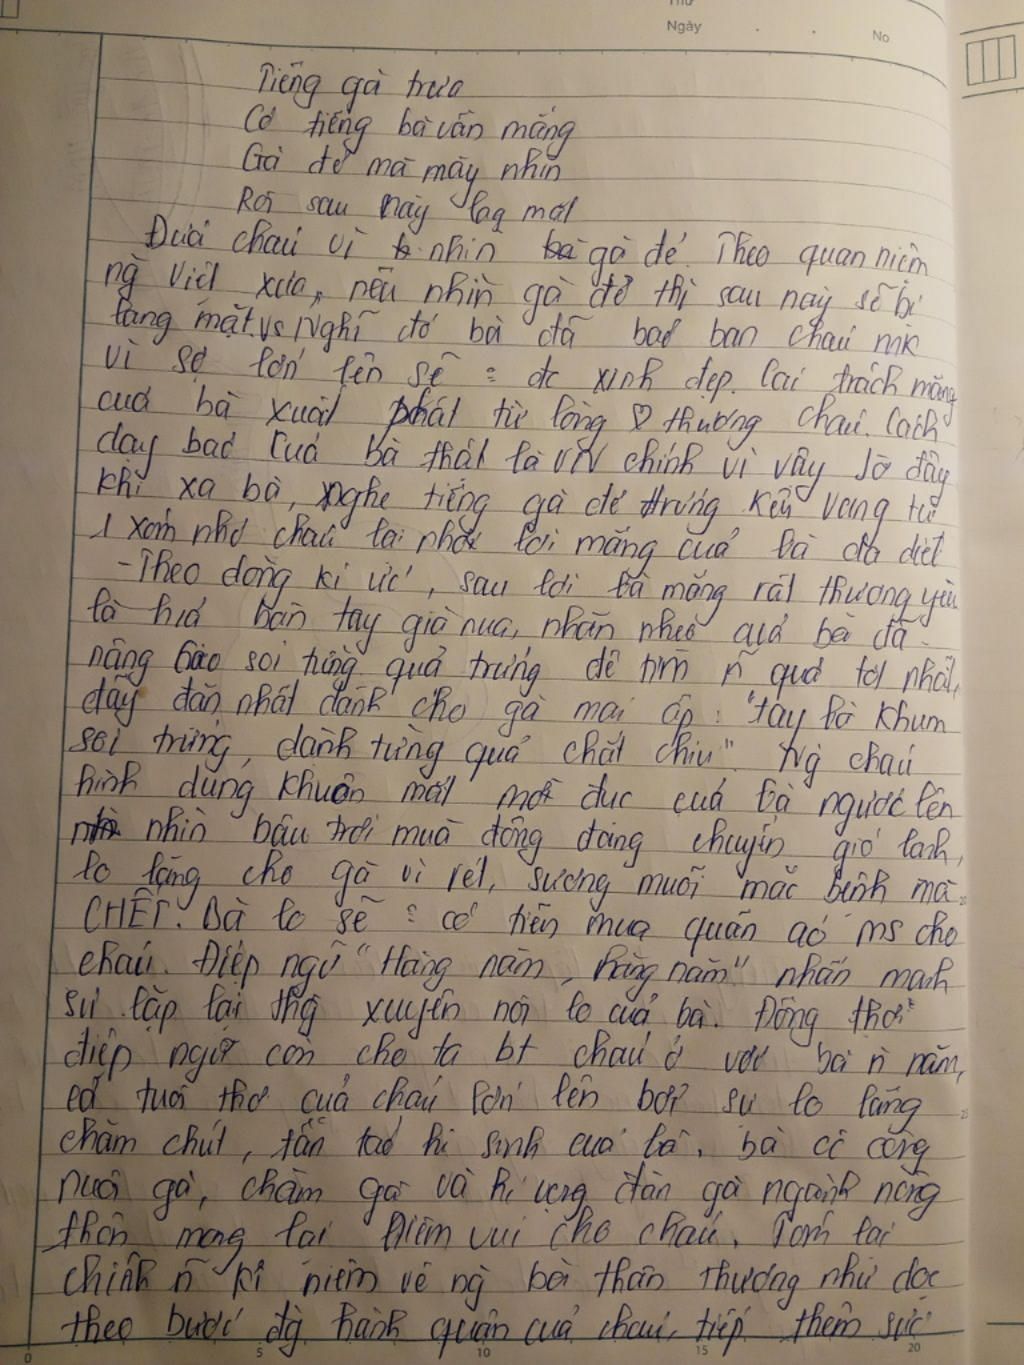 Thứ
Ngày . . No
Tiếng gà trưa
Có tiếng bà vẫn mắng
Gà đẻ mà mày nhìn
Rồi sau này lang mặt
Đứa cháu vì nhìn gà đẻ. Theo quan niệm
ng Việt xưa, nếu nhìn gà đẻ thì sau này sẽ bị
lang mặt. Vs nghĩ đó bà đã bảo ban cháu mk
vì sợ lớn lên sẽ đc xinh đẹp. Lời trách mắng
của bà xuất phát từ lòng ♡ thương cháu. Cách
dạy bảo của bà thật là VN chính vì vậy giờ đây
khi xa bà, nghe tiếng gà đẻ trứng kêu vang từ
1 xóm nhỏ cháu lại nhớ lời mắng của bà da diết
- Theo dòng kí ức, sau lời bà mắng rất thương yêu
là bàn tay già nua, nhăn nheo của bà đã
nâng soi từng quả trứng để tìm n~ quả tốt nhất,
đầy đặn nhất dành cho gà mái ấp: "tay bà khum
soi trứng, dành từng quả chắt chiu". Ng cháu
hình dung khuôn mặt mờ đục của bà ngước lên
nhìn bầu trời mùa đông đang chuyển gió lạnh,
lo lắng cho gà vì rét, sương muối mắc bệnh mà
CHẾT. Bà lo sẽ có tiền mua quần áo ms cho
cháu. Điệp ngữ "Hàng năm, hàng năm" nhấn mạnh
sự lặp lại thg xuyên nỗi lo của bà. Đồng thời
điệp ngữ còn cho ta bt cháu ở với bà n~ năm,
cả tuổi thơ của cháu lớn lên bởi sự lo lắng
chăm chút, tần tảo hi sinh của bà. Bà cố công
nuôi gà, chăm gà và hi vọng đàn gà ngành nông
thôn mang lại niềm vui cho cháu. Tóm lại
chính n~ kỉ niệm về ng bà thân thương như dọc
theo bước đg hành quân của cháu, tiếp thêm sức
0 5 10 15 20